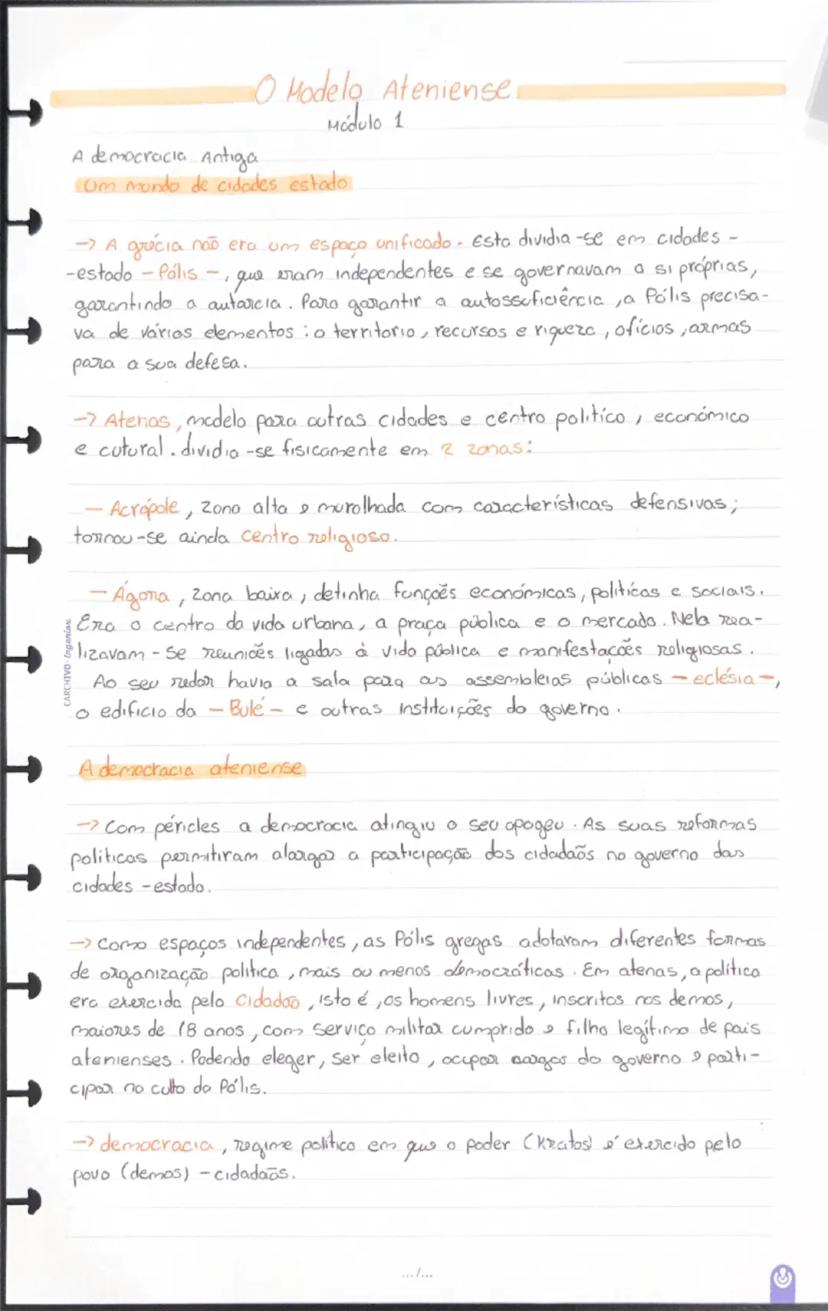 O Modelo Ateniense
Módulo 1
A democracia Antiga
Um mundo de cidades estado
→ A grécia não era um espaço unificado. Esta dividia-se em cidades-
-estado - Pólis -, que eram independentes e se governavam a si próprias,
garantindo a autarcia. Para garantir a autossuficiência, a Pólis precisa-
va de vários elementos: o territorio, recursos e riqueza, ofícios, armas
para a sua defesa.
→ Atenas, modelo para outras cidades e centro politíco, económico
e cutural. dividia-se fisicamente em 2 zonas:
- Acrópole, zona alta e muralhada com características defensivas;
tornou-se ainda centro religioso.
- Ágora, zona baixa, detinha funções económicas, politícas e sociais.
Era o centro da vida urbana, a praça pública e o mercado. Nela rea-
lizavam-se reuniões ligadas à vida pública e manifestações religiosas.
Ao seu redor havia a sala para as assembleias públicas - eclésia -,
o edificio da - Bulé - e outras instituições do governo.
A democracia ateniense
→ Com péricles a democracia atingiu o seu apogeu. As suas reformas
politicas permitiram alargar a participação dos cidadãos no governo das
cidades-estado.
→ Como espaços independentes, as Pólis gregas adotaram diferentes formas
de organização politica, mais ou menos democráticas. Em atenas, a política
era exercida pelo cidadão, isto é, os homens livres, inscritos nos demos,
maiores de 18 anos, com serviço militar cumprido e filho legítimo de pais
atenienses. Podendo eleger, ser eleito, ocupar cargos do governo e parti-
cipar no culto da Pólis.
→ democracia, regime político em que o poder (Kratos) é exercido pelo
povo (demos) - cidadãos.
.../...